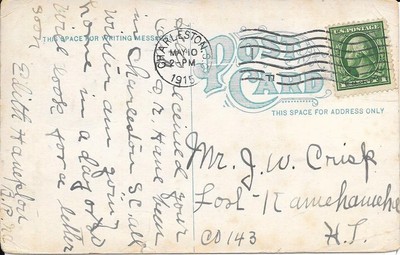 THIS SPACE FOR WRITING MESSAGES
POST
CARD
THIS SPACE FOR ADDRESS ONLY
CHARLESTON, S.C.
MAY 10
2-PM
1915
received your
Have been
in Charleston S.C. all
winter am going
home in a day or two
Will look for a letter
soon
Edith
Mr. J. W. Crisp
CO 143
H.T.